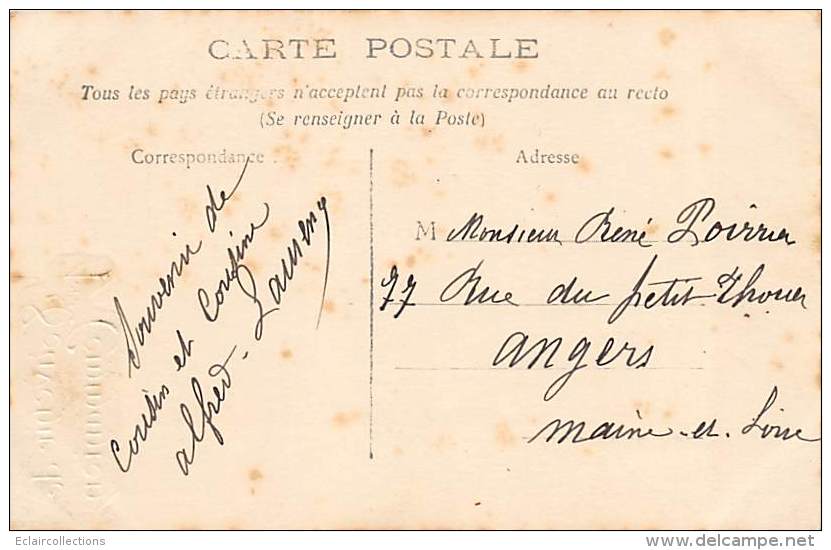 CARTE POSTALE
Tous les pays étrangers n'acceptent pas la correspondance au recto
(Se renseigner à la Poste)
Correspondance
Adresse
Souvenir de
cousin et Cousine
alfred
M Monsieur René Poirrier
77 Rue du petit Thouer
angers
maine et Loire
Eclaircollections
www.delcampe.net